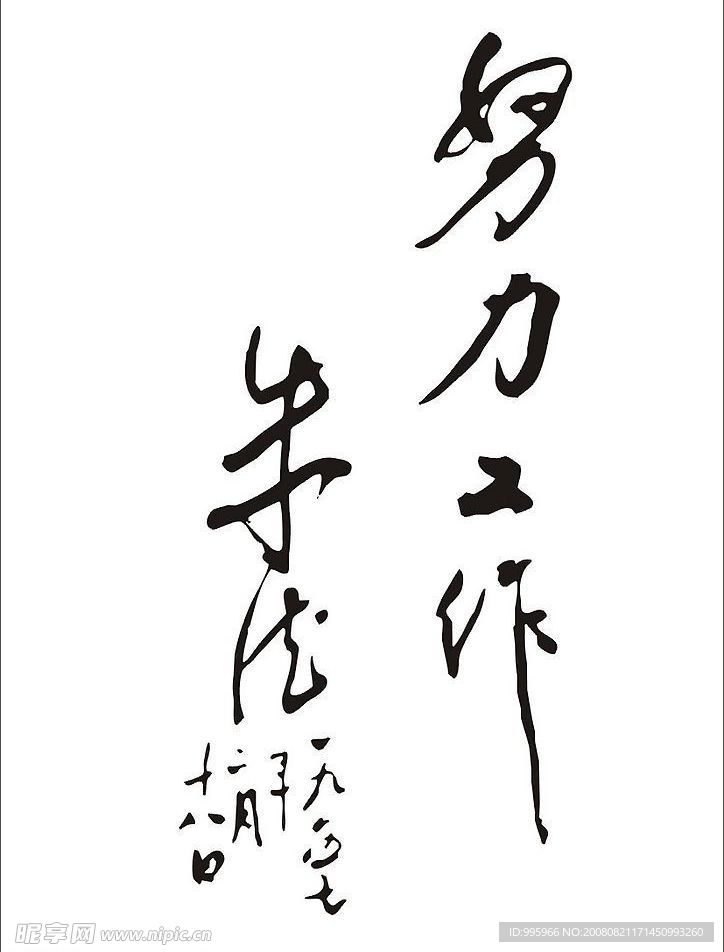 努力工作
朱德
一九五七
年
二月
十八日
昵享网 www.nipic.cn
ID:995966 NO:20080821171450993260